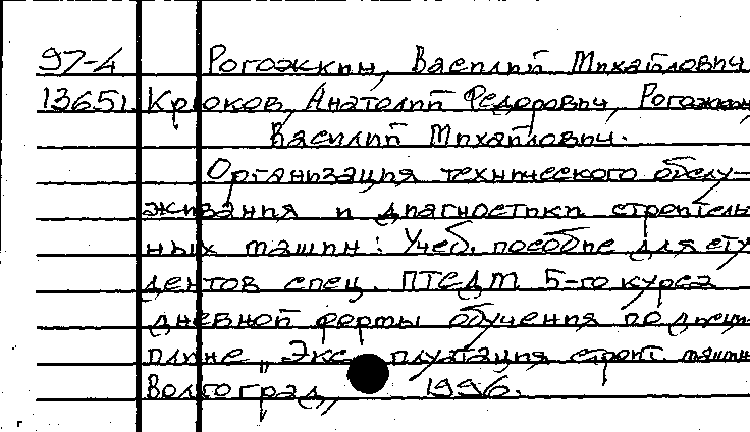 97-4 Рогожкин, Василий Михайлович
13651 Крюков, Анатолий Федорович, Рогожкин,
Василий Михайлович.
Организация технического обслу-
живания и диагностики строитель
ных машин: Учеб. пособие для сту
дентов спец. ПТСДМ 5-го курса
дневной формы обучения по дисци
плине „Эксплуатация строит машин
Волгоград, 1996.